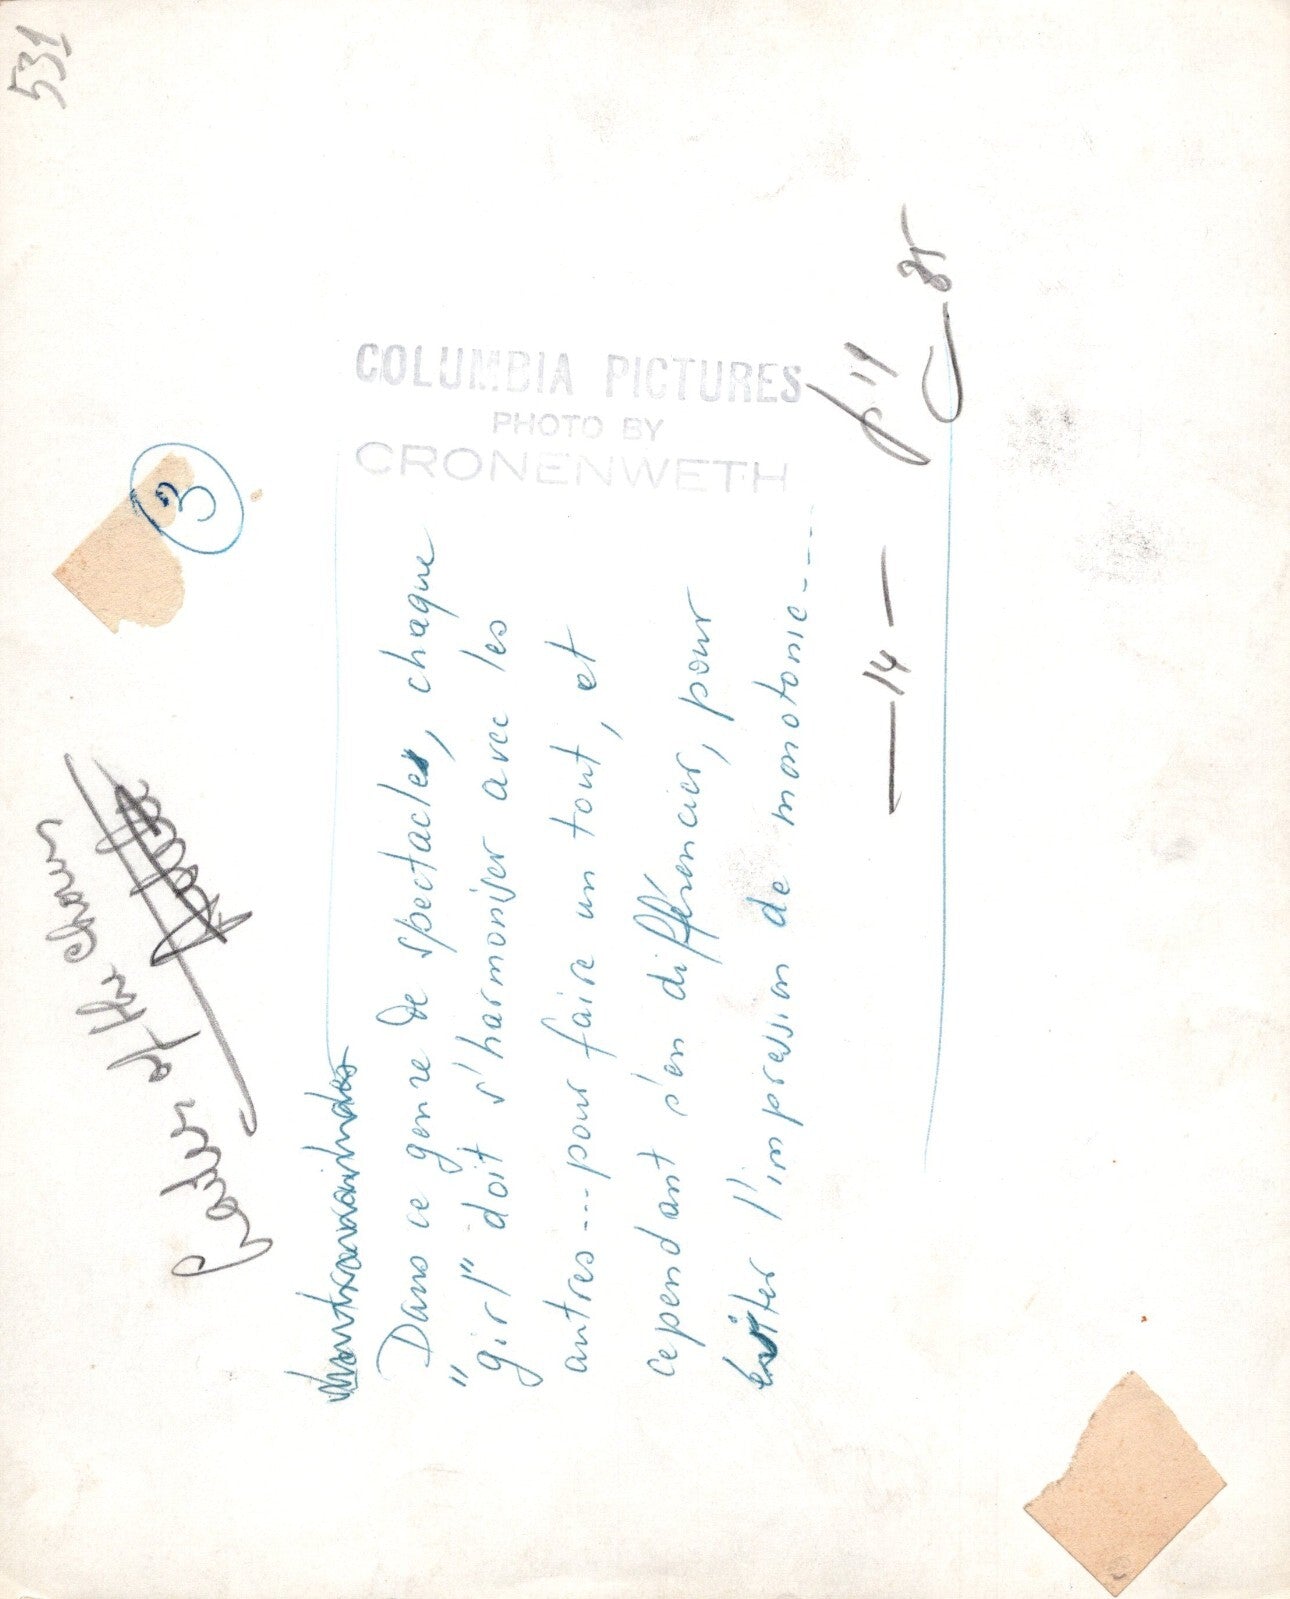 531
COLUMBIA PICTURES
PHOTO BY
CRONENWETH
3
of the
Dans ce genre de spectacles, chaque
"girl" doit s'harmoniser avec les
autres---pour faire un tout, et
cependant s'en différencier, pour
éviter l'impression de monotonie----
— 14 —